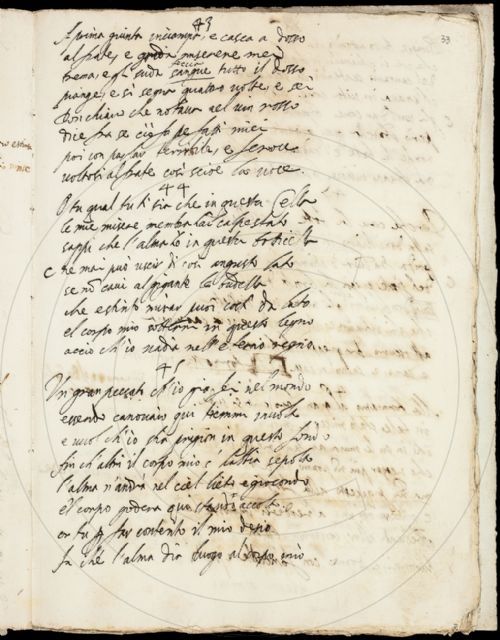 43
33
A prima giunta inciampa, e casca a dosso
al frate, e grida miserere mei
trema, e gli suda sangue tutto il dosso
piange, e si segna quattro volte, e sei
Don chiaro che notava nel vin rosso
dice fra se
poi con parlar terribile, e feroce
voltosi al frate così sciolse la voce
44
O tu qual tu ti sia che in questa Cella
le mie misere membra hai calpestato
sappi che l'alma è in questa botticella
che mai può uscir di così angusto lato
se non cavi al gigante la
che estinto mirar puoi costì da lato
el corpo mio sotterra in questo legno
acciò ch'io vada nell'eterno regno
45
Un gran peccato ch'io già fei nel mondo
essendo canovaio qui
e vuol ch'io stia prigion in questo fondo
fin ch'altri il corpo mio c'habbia sepolto
l'alma n'andrà nel ciel lieto e giocondo
el corpo goderà qui
or tu fa far contento il mio desio
fa che l'alma dia luogo al corpo mio